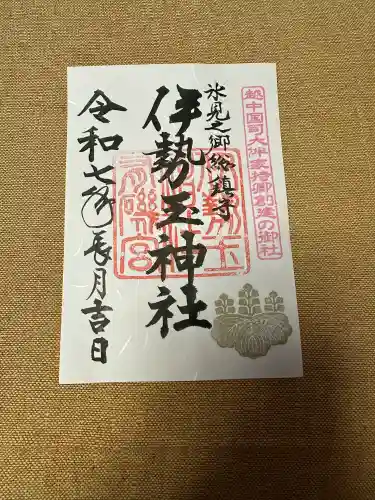 越中国司大伴家持卿創建の御社
氷見之御総鎮守
伊勢玉神社
令和七年長月吉日